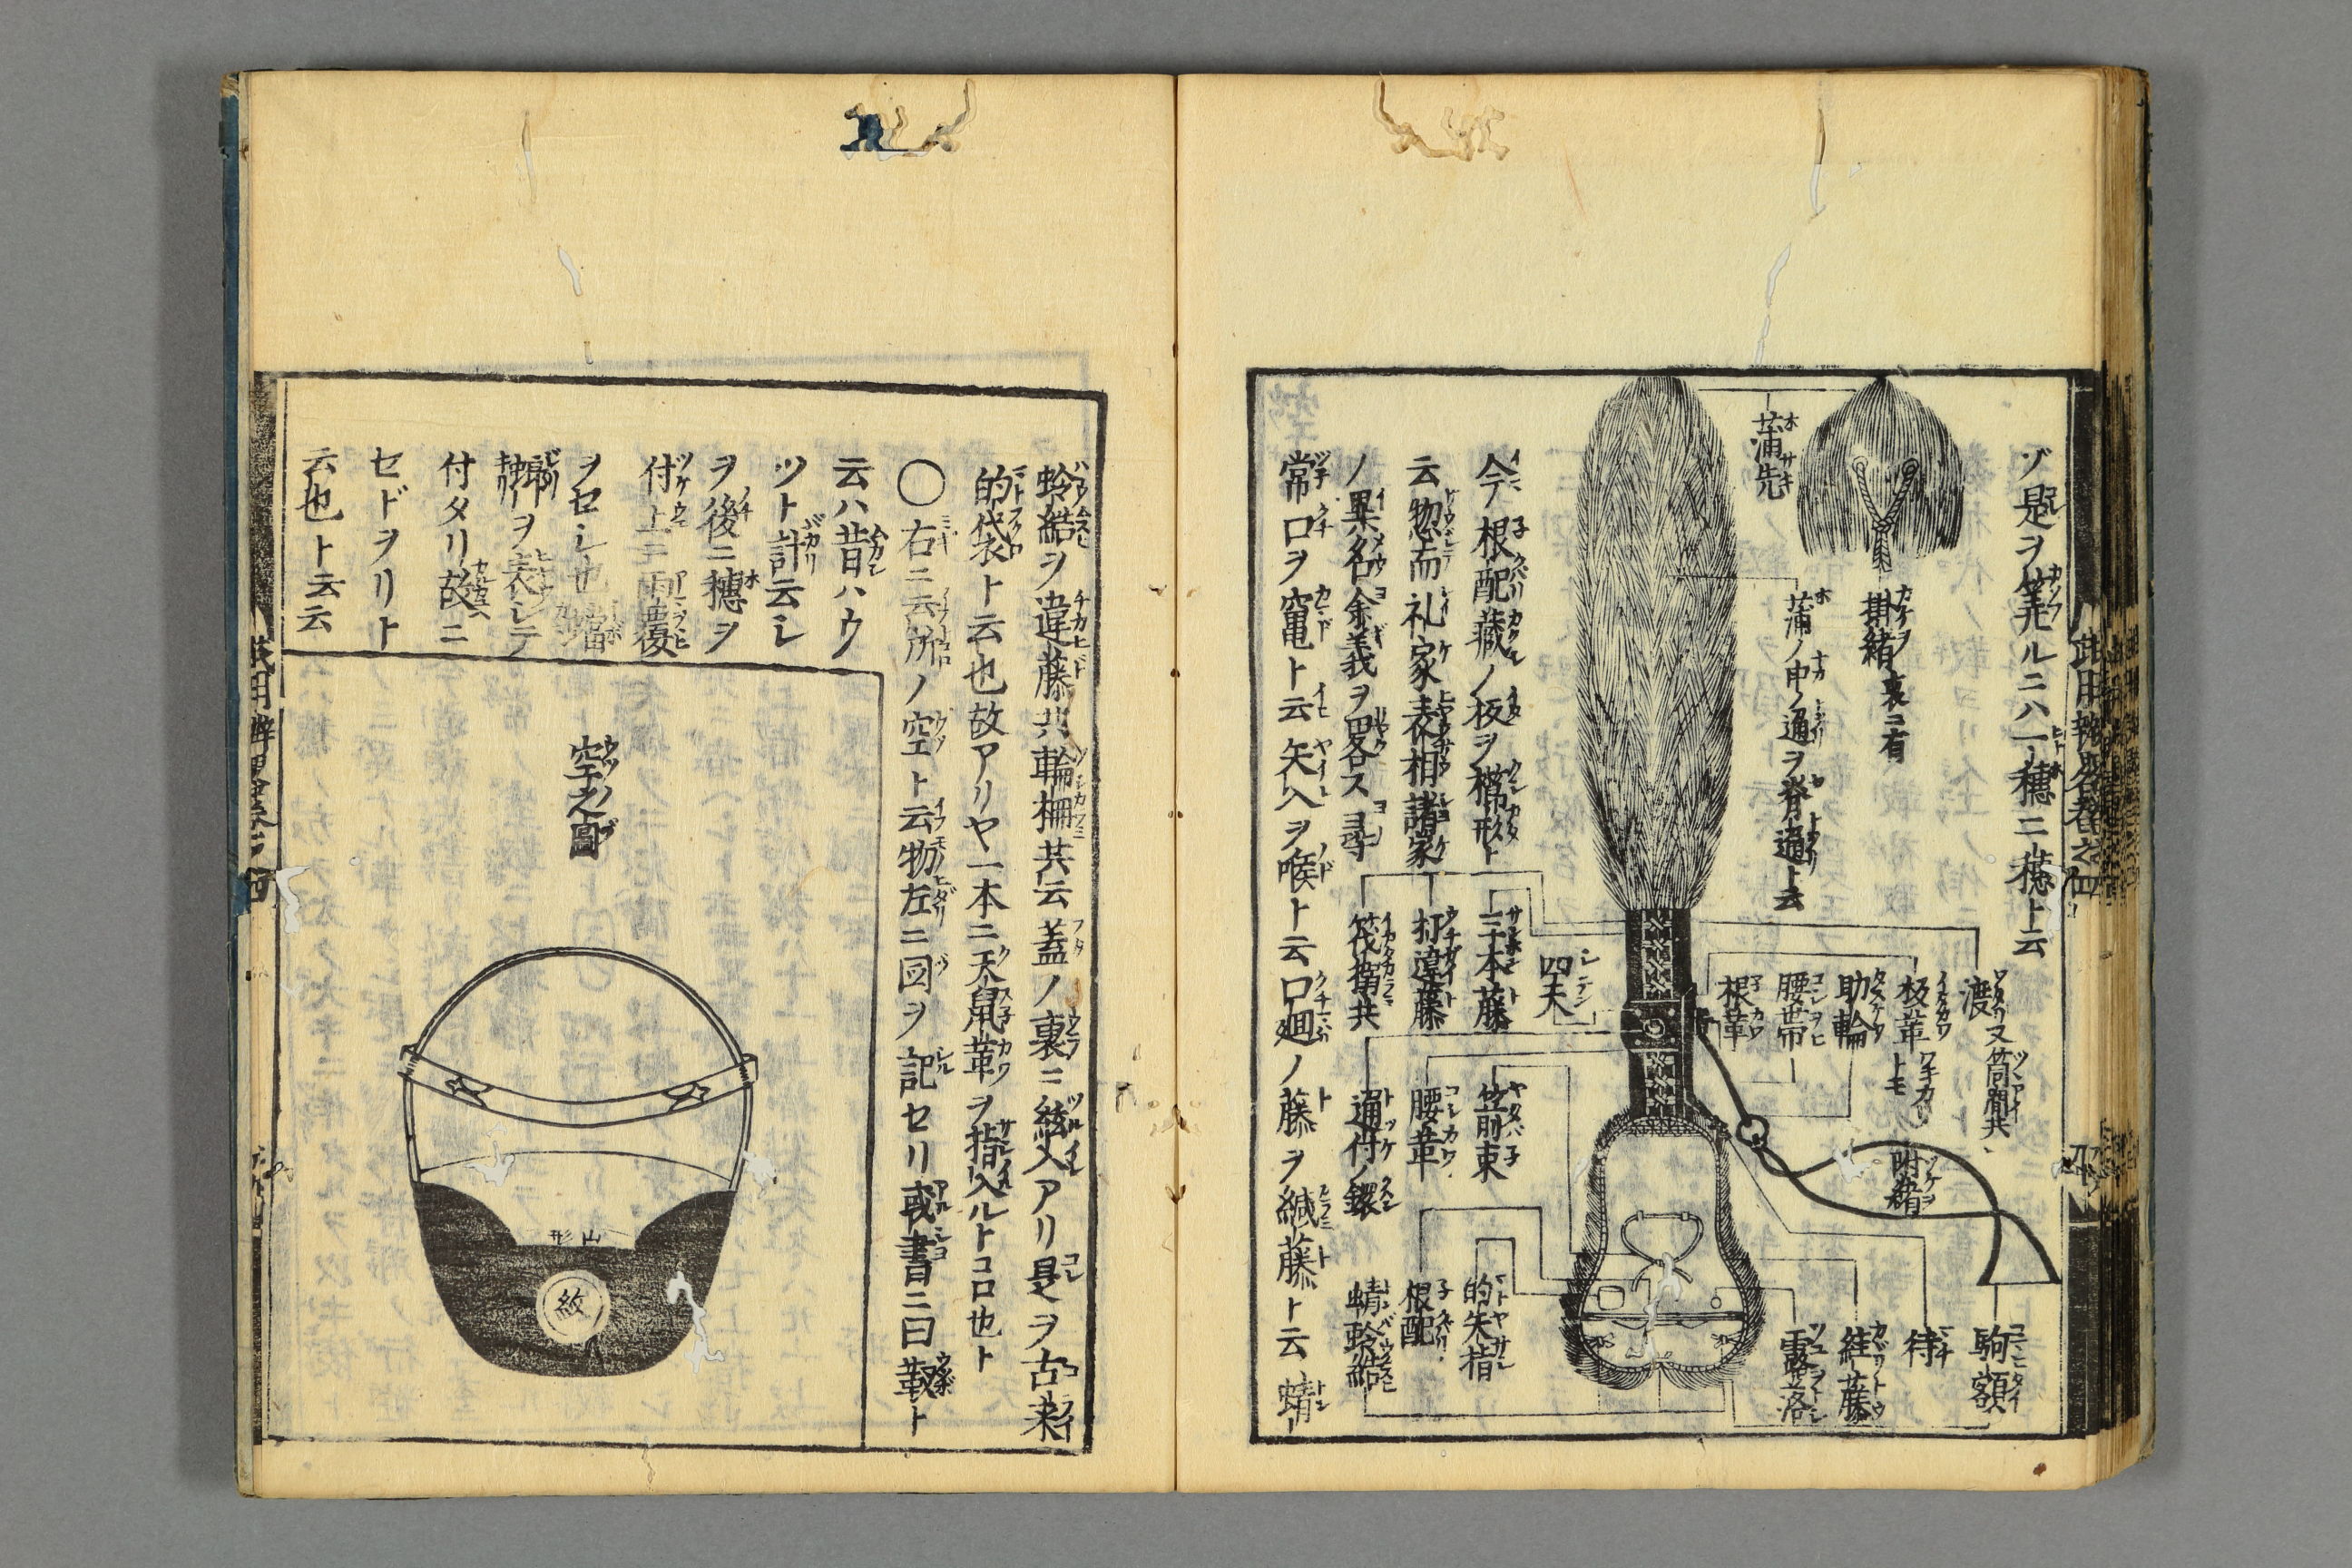 ゾ是ヲ筭ルニハ一穂二穂ト云
掛緒裏ニ有
蒲先
蒲ノ中ノ通ヲ脊通ト云
渡又筒間共
板革
助輪
腰帯
根革
附緒
駒額
待
露落
四天
三本藤
打違藤
筏搦共
箭束
腰革
的矢指
根配
蜻蛉結
今根配蔵ノ板ヲ櫛形ト
云惣而礼家表相諸家
ノ異名余義ヲ畧ス
常口ヲ竃ト云矢入ヲ喉ト云口廻ノ藤ヲ縅藤ト云蜻
蛉結ヲ違藤共輪柵共云蓋ノ裏ニ絃入アリ是ヲ古来
的袋ト云也故アリヤ一本ニ天鼠革ヲ指入ルトコロ也ト
〇右ニ云所ノ空ト云物左ニ図ヲ記セリ或書ニ曰靫ト
云ハ昔ハウ
ツト計云シ
ヲ後ニ穂ヲ
付上モ雨覆
ヲセシ也
ヲ表シテ
付タリ故ニ
セドヲリト
云也ト云云
空之圖
山形
紋